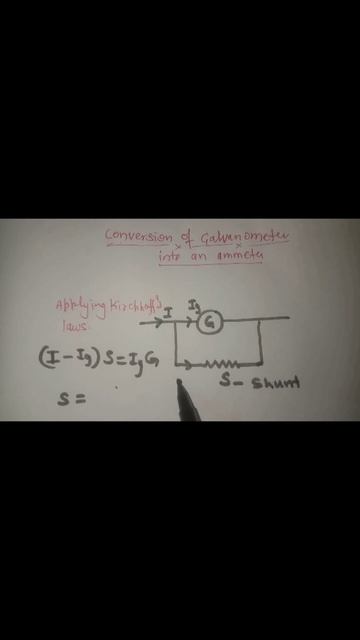 Conversion of Galvanometer
into an ammeter
Applying Kirchhoff's
laws.
I
Ig
G
(I-Ig)S=IgG
S- Shunt
S=